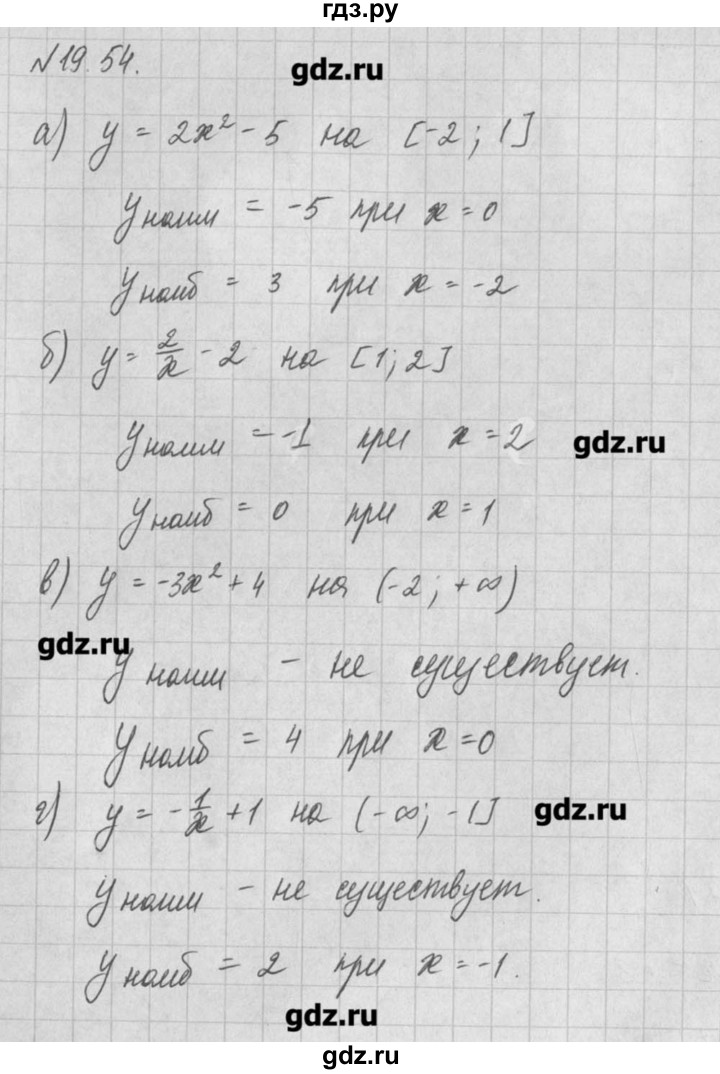 гдз.ру
№19.54.
gdz.ru
а) y = 2x² - 5 на [-2; 1]
y наим = -5 при x = 0
y наиб = 3 при x = -2
б) y = 2/x - 2 на [1; 2]
y наим = -1 при x = 2
gdz.ru
y наиб = 0 при x = 1
в) y = -3x² + 4 на (-2; +∞)
gdz.ru
y наим - не существует.
y наиб = 4 при x = 0
г) y = -1/x + 1 на (-∞; -1]
gdz.ru
y наим - не существует.
y наиб = 2 при x = -1.
gdz.ru
gdz.ru